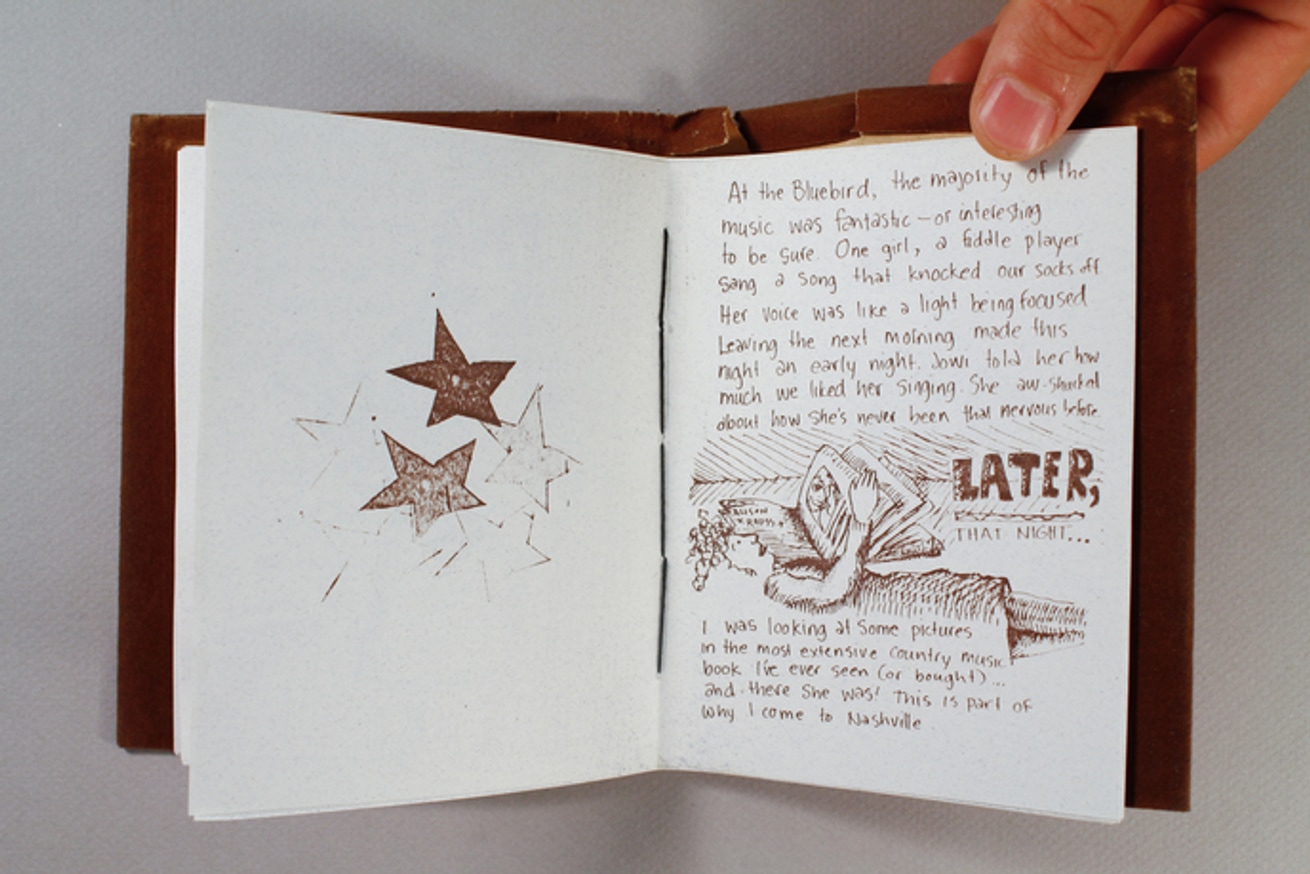 At the Bluebird, the majority of the
music was fantastic – or interesting
to be sure. One girl, a fiddle player
sang a song that knocked our socks off
Her voice was like a light being focused
Leaving the next morning made this
night an early night. Jowi told her how
much we liked her singing. She aw-shucked
about how she's never been that nervous before.
LATER,
THAT NIGHT...
ALISON
KRAUSS
I was looking at some pictures
in the most extensive country music
book I've ever seen (or bought)...
and there she was! This is part of
why I come to Nashville